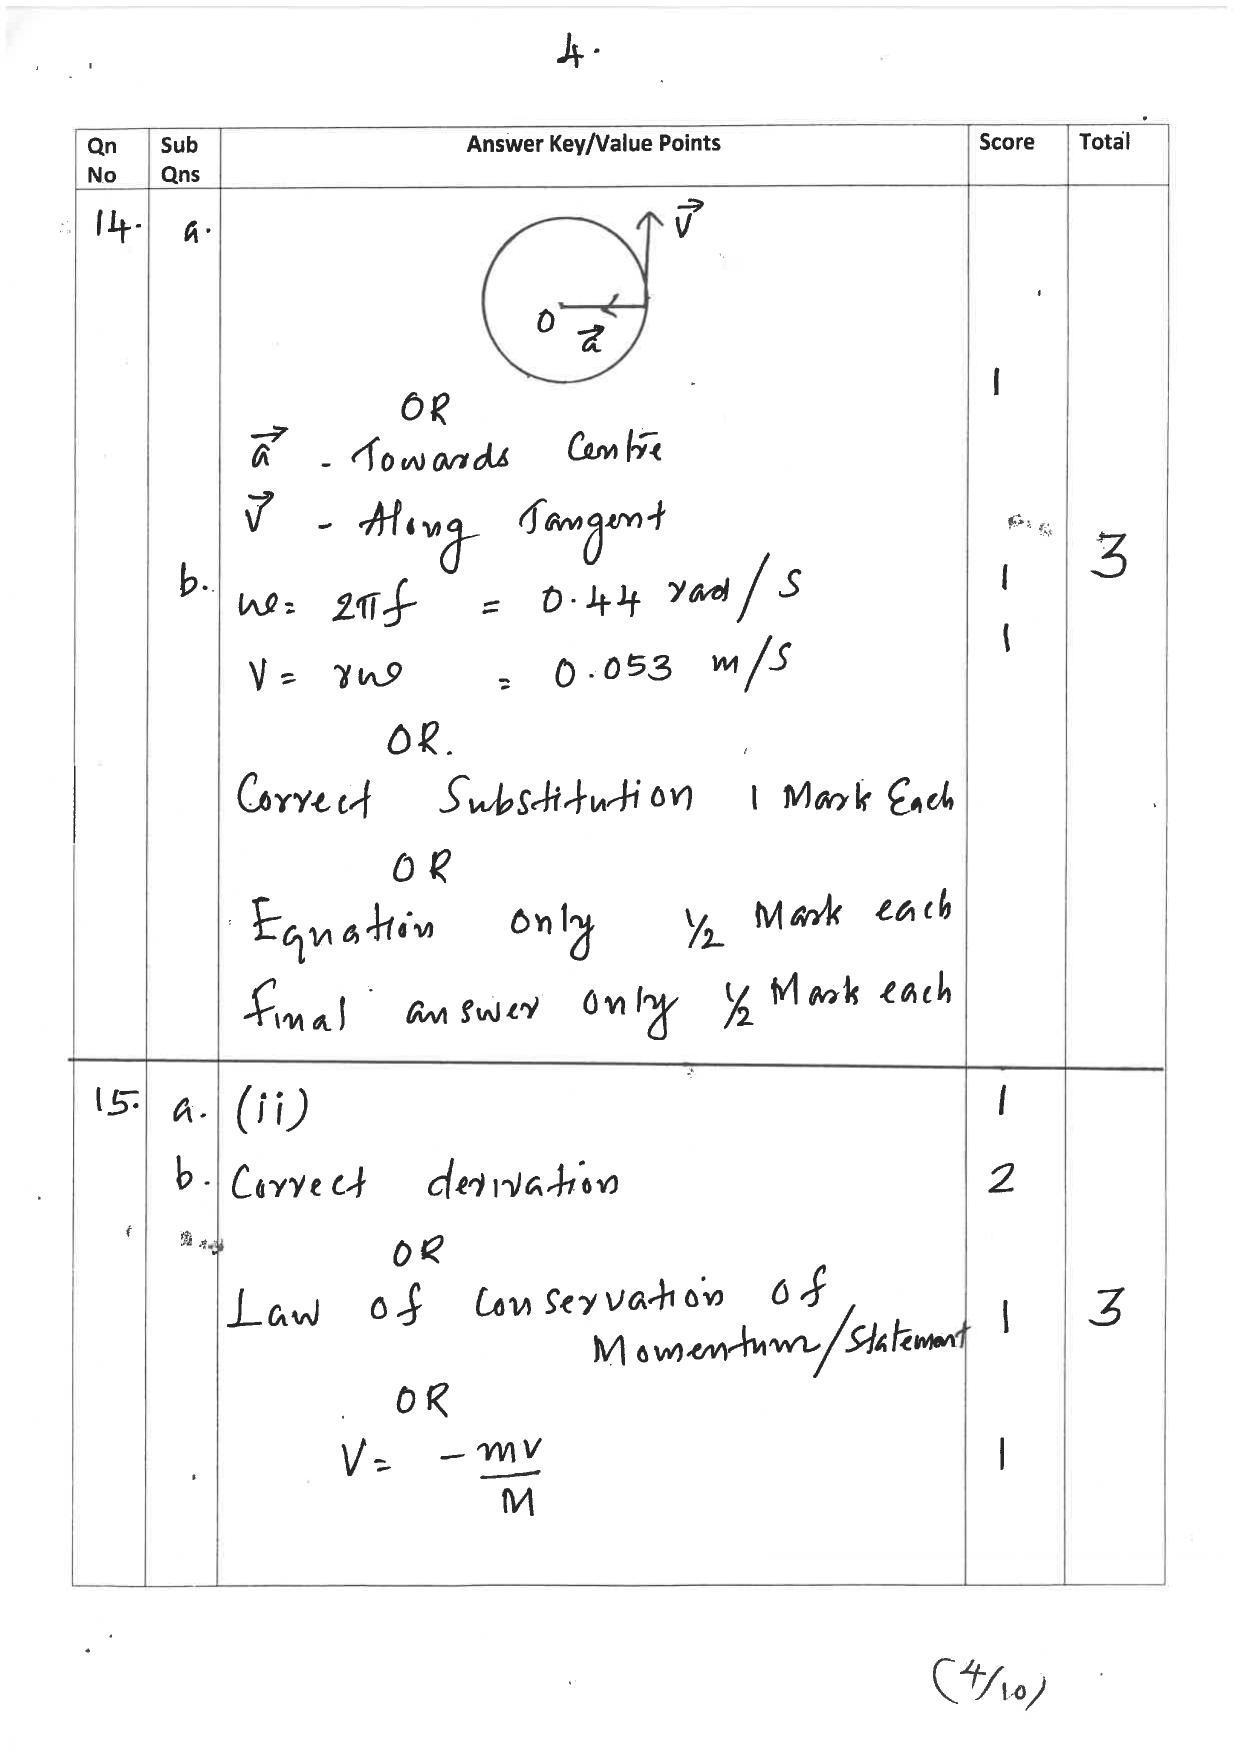 4.
Qn No Sub Qns Answer Key/Value Points Score Total
14. a.
v⃗
O
a⃗
1
OR
a⃗ - Towards Centre
v⃗ - Along Tangent
3
b. ω = 2πf = 0.44 rad/s 1
V = rω = 0.053 m/s 1
OR.
Correct Substitution 1 Mark Each
OR
Equation only ½ Mark each
final answer only ½ Mark each
15. a. (ii) 1
b. Correct derivation 2
OR
Law of Conservation of
Momentum/Statement 1 3
OR
V = -mv/M 1
(4/10)